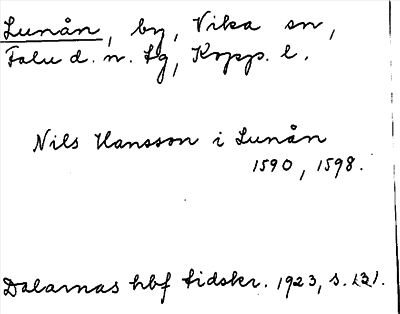 Lunån, by, Vika sn,
Falu d. n. tg, Kopp. l.
Nils Hansson i Lunån
1590, 1598.
Dalarnas hbf tidskr. 1923, s. 131.